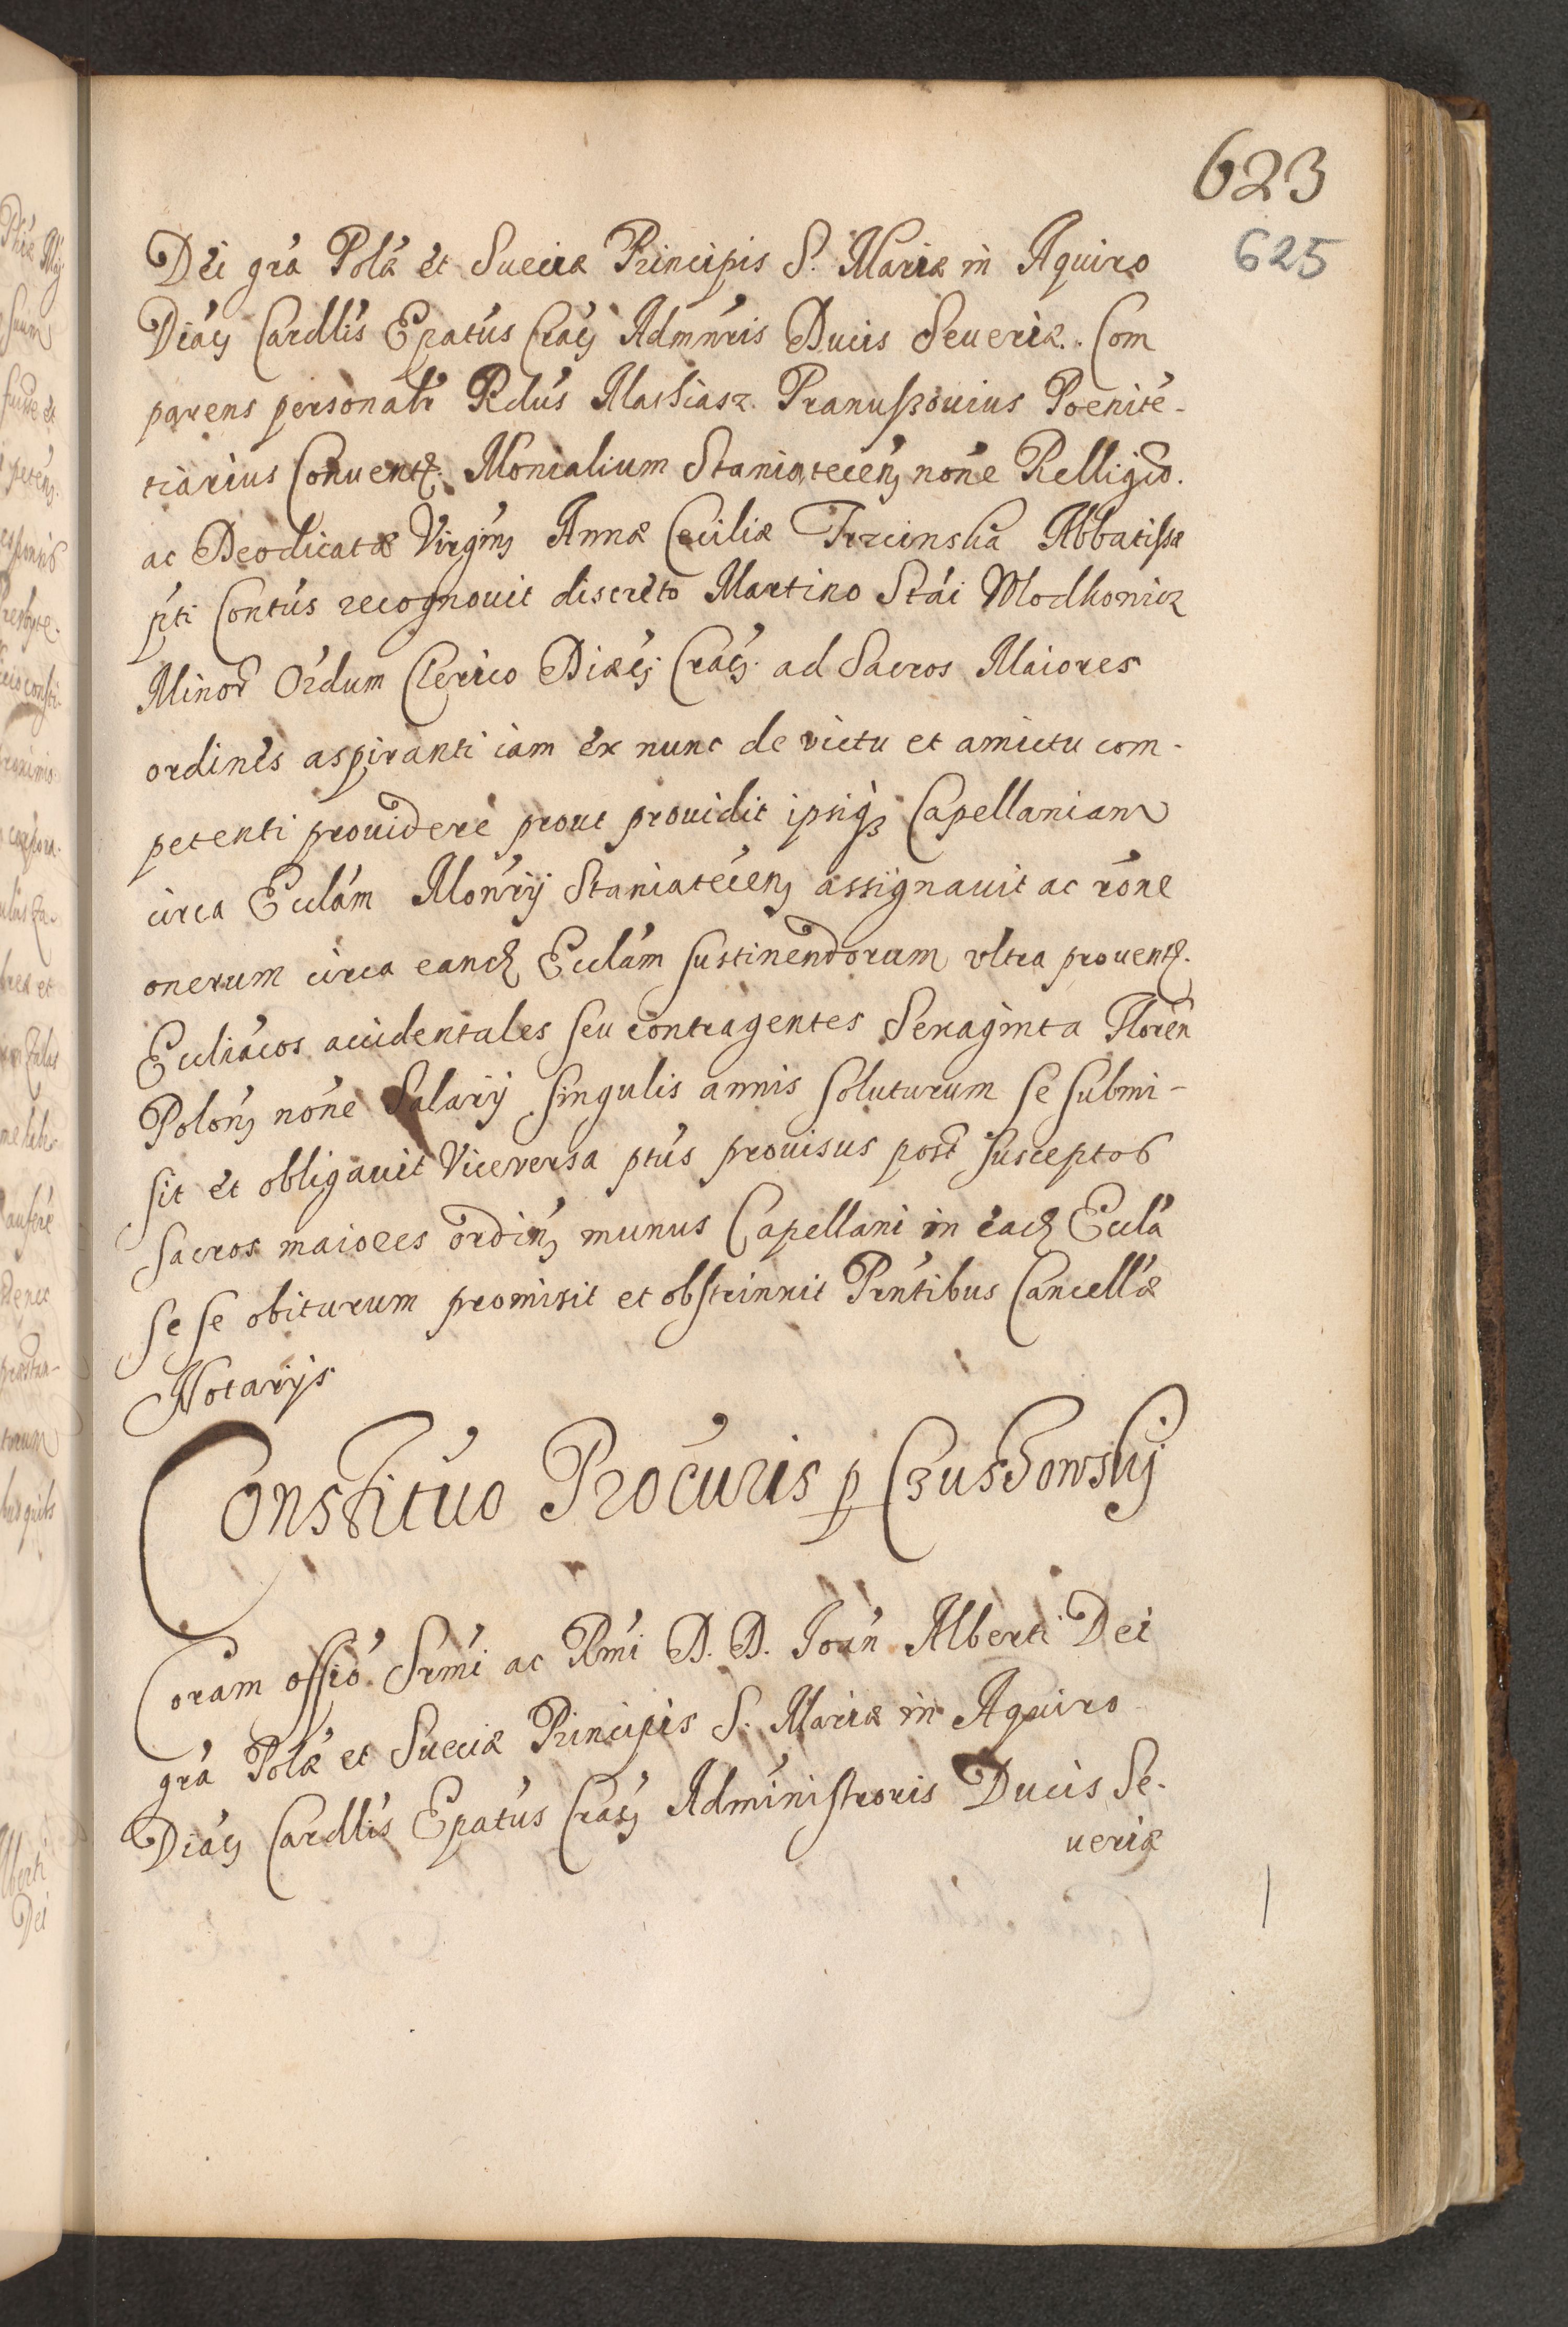 623
625
Dei grá Polæ et Sueciæ Principis S. Mariæ in Aquiro
Diác Cardlis Epatús Crac Admnris Ducis Seueriæ. Com
parens personalr Rdús Machiasz Pranuszouius Poenité-
tiarius Conuent. Monialium Staniateceń nóne Relligió.
ac Deodicatæ Virgiń Annæ Ceciliæ Trzcinska Abbatissæ
pti Contús recognouit discreto Martino Stái Wlodkowicz
Minor Ordum Clerico Diæc Crac ad Sacros Maiores
ordines aspiranti iam ex nunc de victu et amictu com-
petenti prouidere prout prouidit ipsiq Capellaniam
circa Eccláм Monrij Staniateceń assignauit ac róne
onerum circa eand Ecclám sustinendorum vltra prouent.
Eccliácos accidentales seu contragentes Sexaginta Floren
Poloń nóne Salarij singulis annis soluturum se submi-
sit et obligauit Viceversa ptús prouisus post susceptos
sacros maiores ordiń munus Capellani in ead Ecclá
se se obiturum promisit et obstrinxit Pntibus Cancellæ
Notarijs
Constituo Procuris p Czustowskÿ
Coram offió Srmi ac Rmi D. D. Ioán Alberti Dei
grá Polæ et Sueciæ Principis S. Mariæ in Aquiro
Diác Cardlis Epatús Crac Administroris Ducis Se-
ueriæ